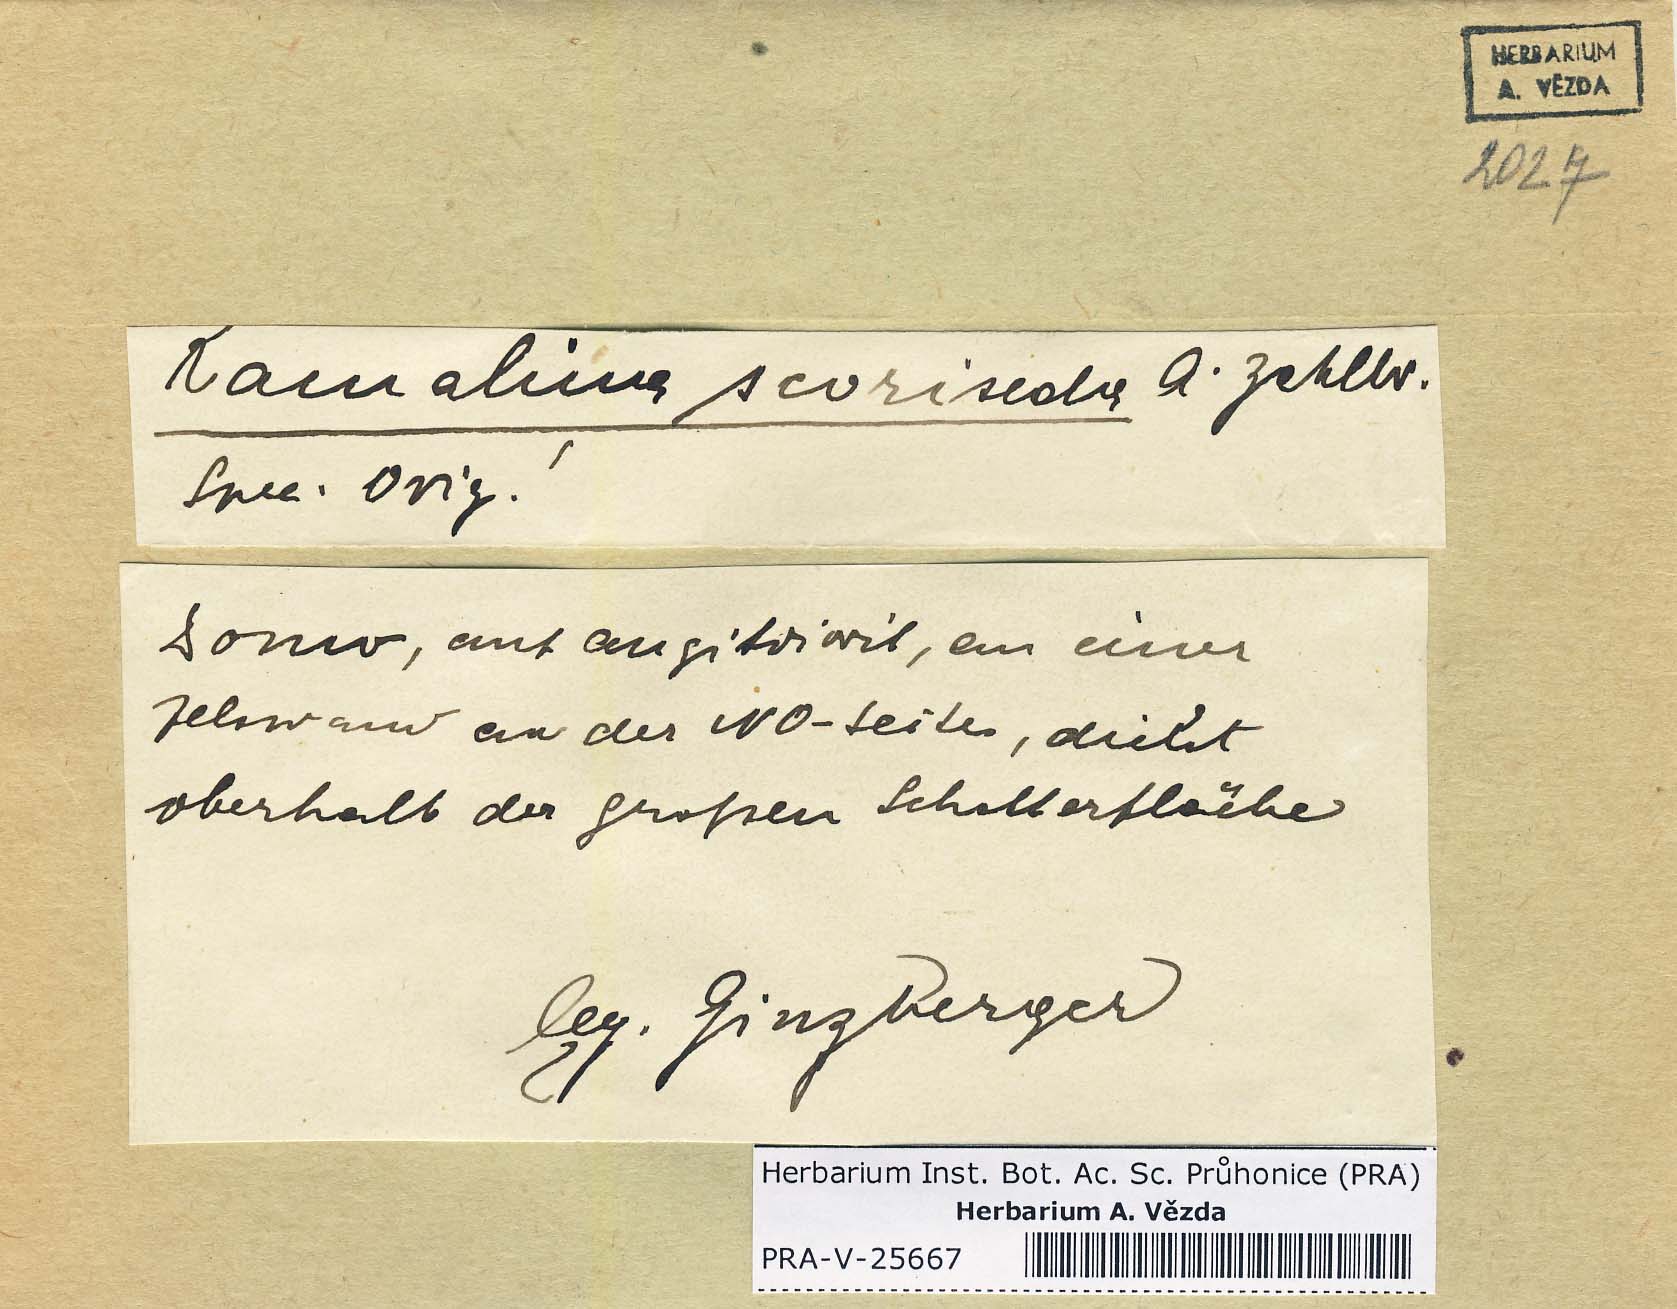 HERBARIUM
A. VĚZDA
2027
Ramalina scoriseda A. Zahlbr.
Spec. Orig.!
Pomo, auf Augitdiorit, an einer
Felswand an der NO-Seite, dicht
oberhalb der großen Schotterfläche
leg. Ginzberger
Herbarium Inst. Bot. Ac. Sc. Průhonice (PRA)
Herbarium A. Vězda
PRA-V-25667